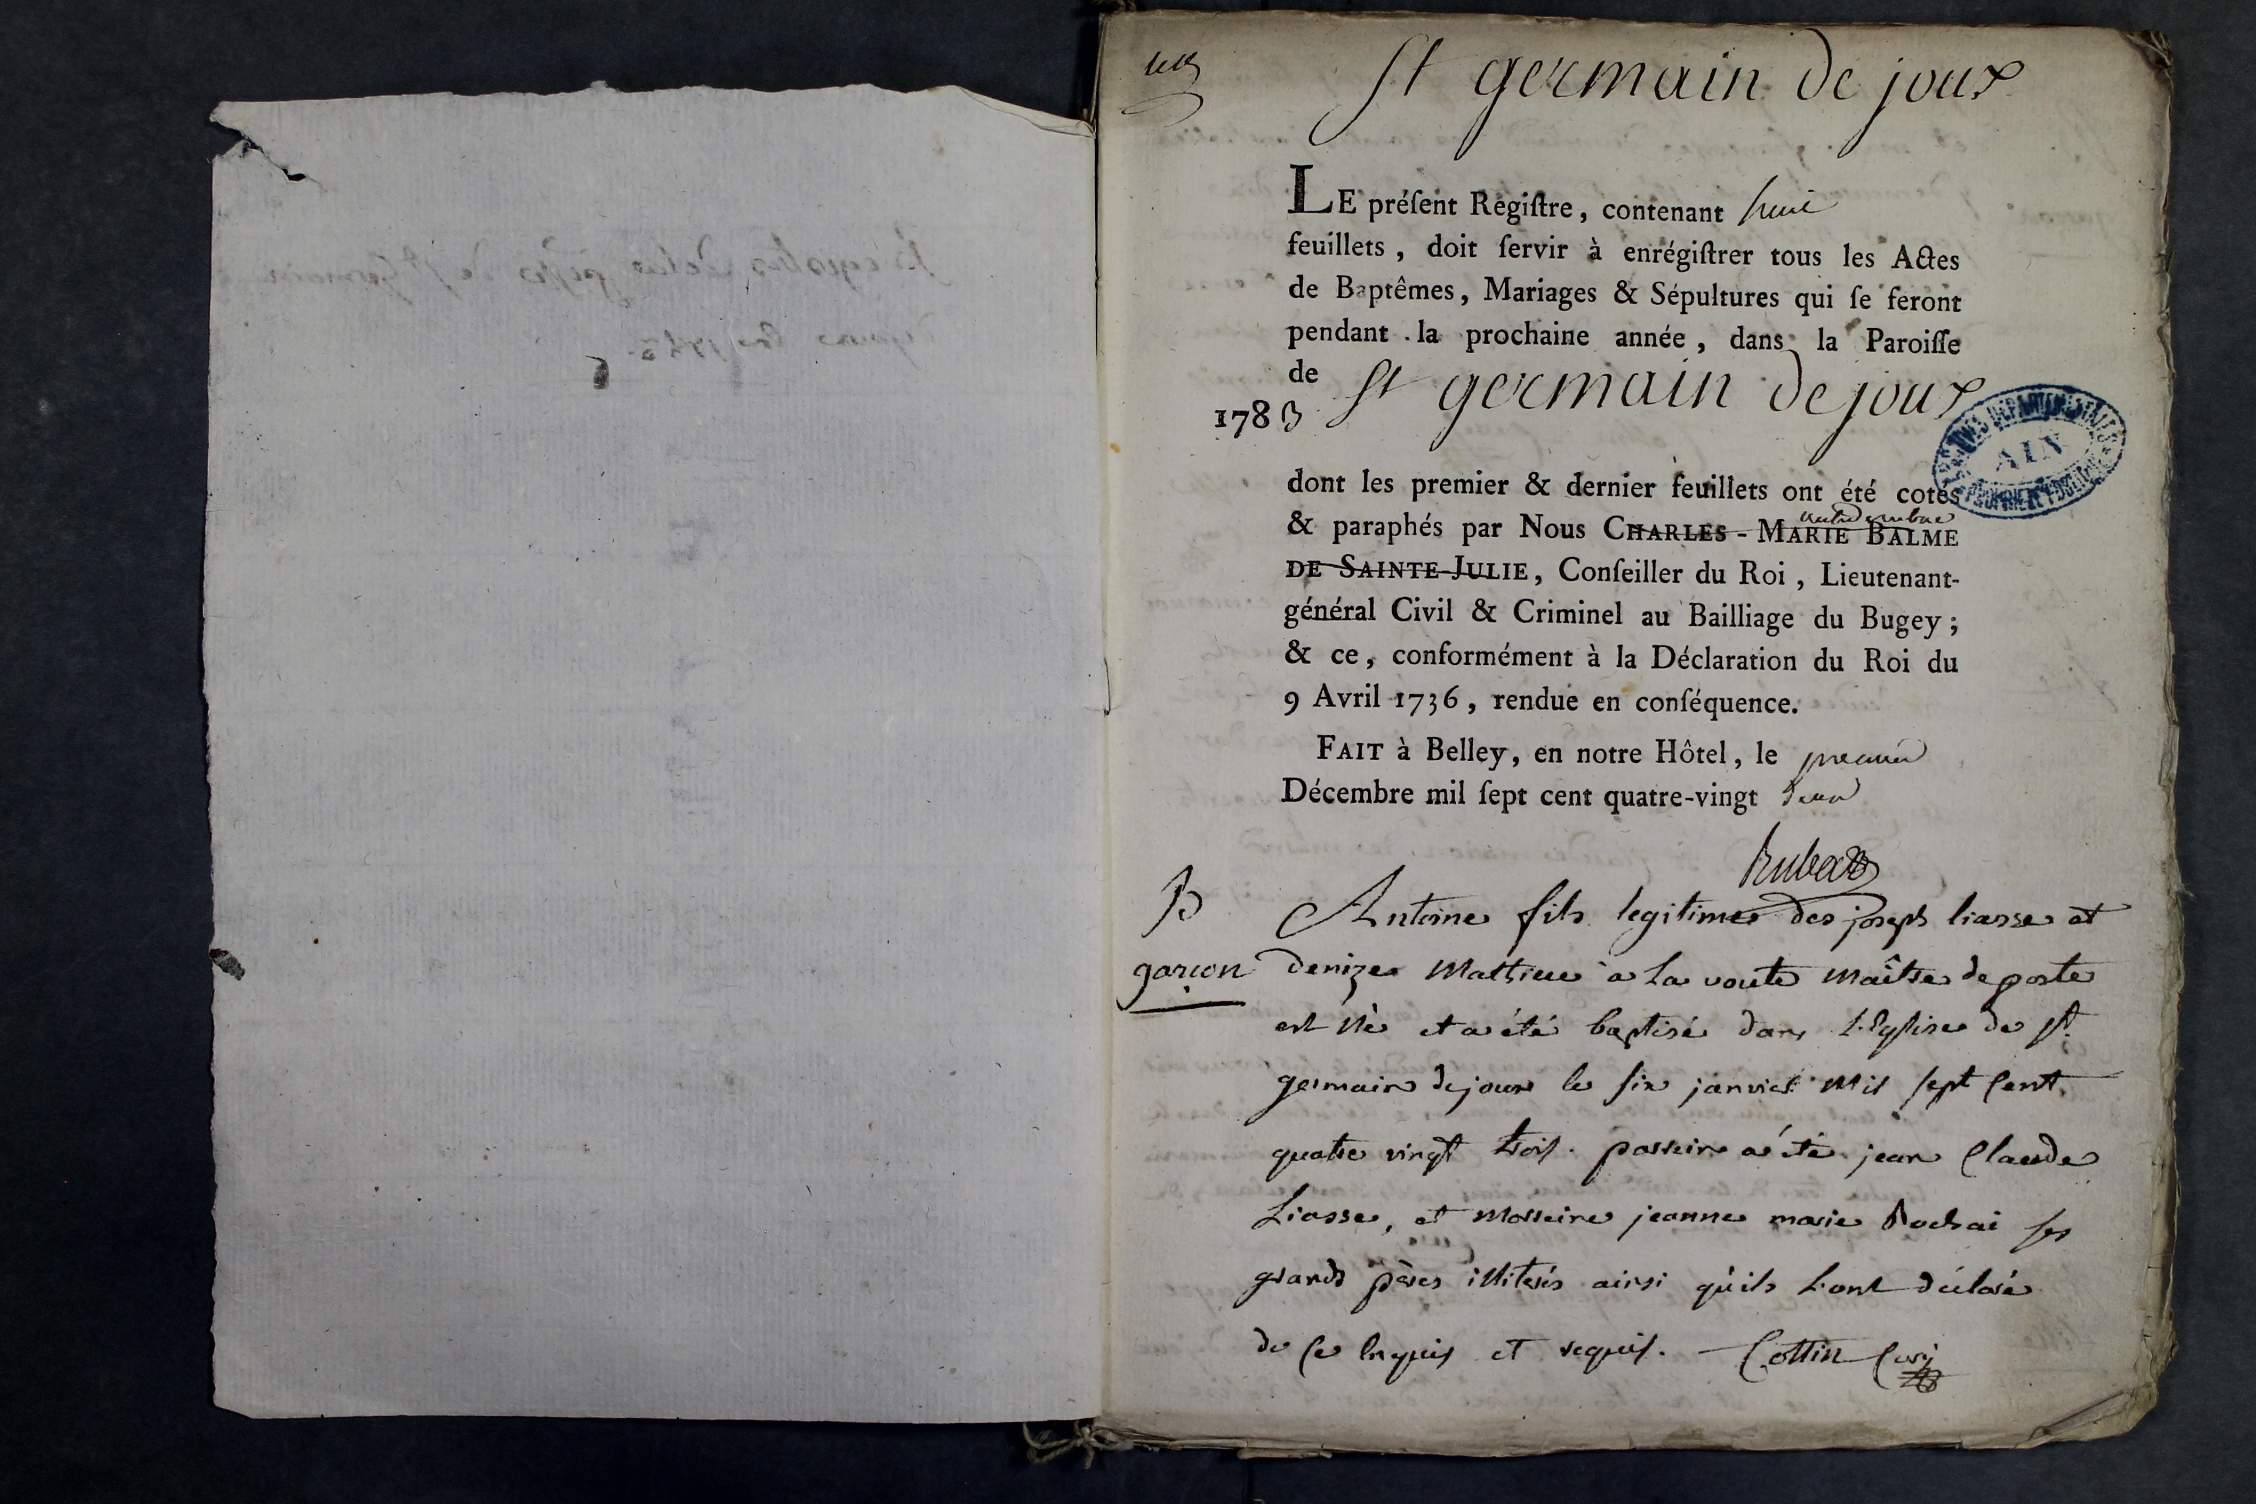 St germain de joux
LE préſent Régiſtre, contenant huit
feuillets, doit ſervir à enrégiſtrer tous les Actes
de Baptêmes, Mariages & Sépultures qui ſe feront
pendant la prochaine année, dans la Paroiſſe
de St germain de joux
1783
dont les premier & dernier feuillets ont été cotés
& paraphés par Nous CHARLES-MARIE BALME
DE SAINTE-JULIE, Conſeiller du Roi, Lieutenant-
général Civil & Criminel au Bailliage du Bugey;
& ce, conformément à la Déclaration du Roi du
9 Avril 1736, rendue en conſéquence.
FAIT à Belley, en notre Hôtel, le premier
Décembre mil ſept cent quatre-vingt deux
B
garçon
Antoine fils legitime de joseph liasse et
denize Mathieu a La voute Maître de poste
est né et a été baptisé dans L'Eglise de St
germain de joux le six janvier Mil sept Cent
quatre vingt trois. parrein a été jean Claude
Liasse, et Marreine jeanne marie Rochai ses
grands pères illiterés ainsi qu'ils L'ont déclaré
de Ce Enquis et requis. Cottin Curé
ARCHIVES DÉPARTEMENTALES
AIN
PROPRIÉTÉ PUBLIQUE